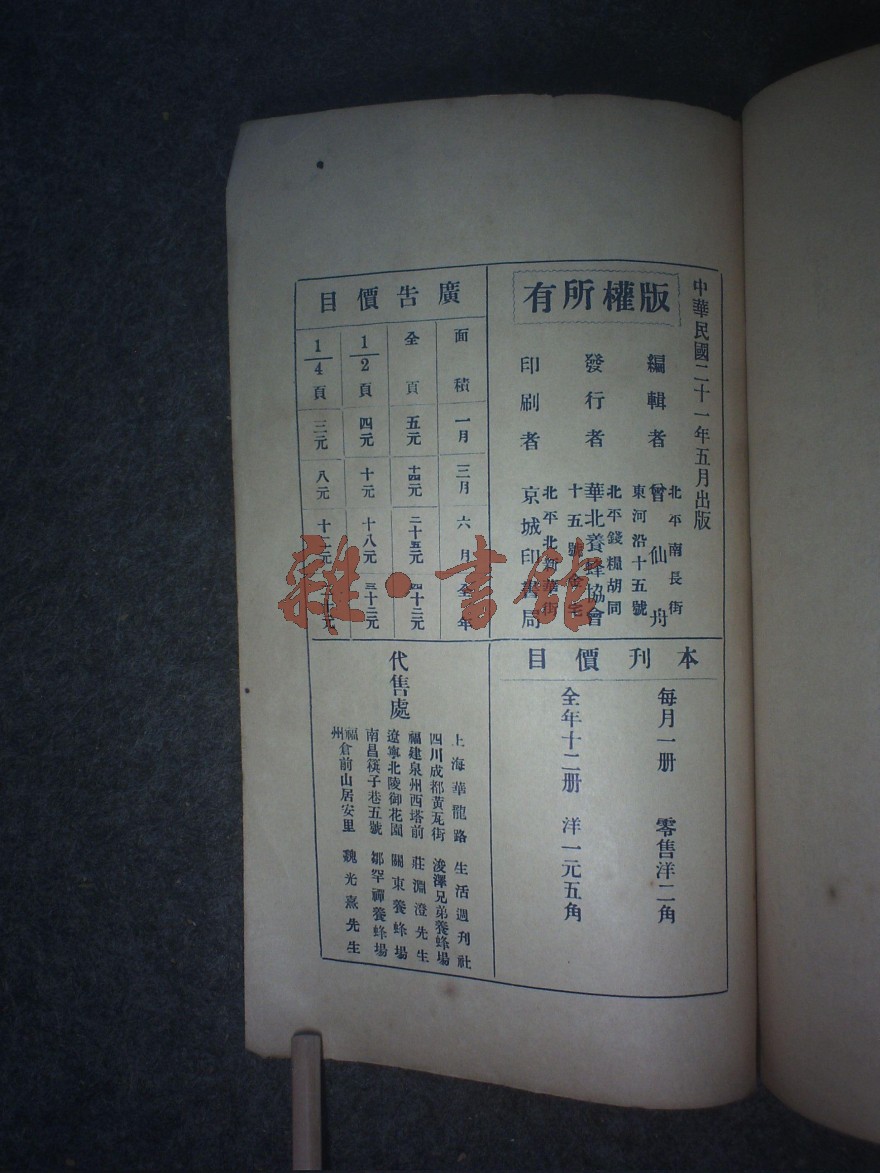 中華民國二十一年五月出版
版權所有
編輯者
北平南長街
東河沿十五號
曾仙舟
發行者
北平錢糧胡同
十五號金宅
華北養蜂協會
印刷者
北平北新華街
京城印書局
廣告價目
面積 一月 三月 六月 全年
全頁 五元 十四元 二十五元 四十二元
1/2頁 四元 十元 十八元 三十二元
1/4頁 三元 八元 十二元
本刊價目
每月一册 零售洋二角
全年十二册 洋一元五角
代售處
上海華龍路 生活週刊社
四川成都黃瓦街 浚澤兄弟養蜂場
福建泉州西塔前 莊淵澄先生
遼寧北陵御花園 關東養蜂場
南昌篾子巷五號 鄒罕禪養蜂場
福州倉前山居安里 魏光熹先生
雜·書館